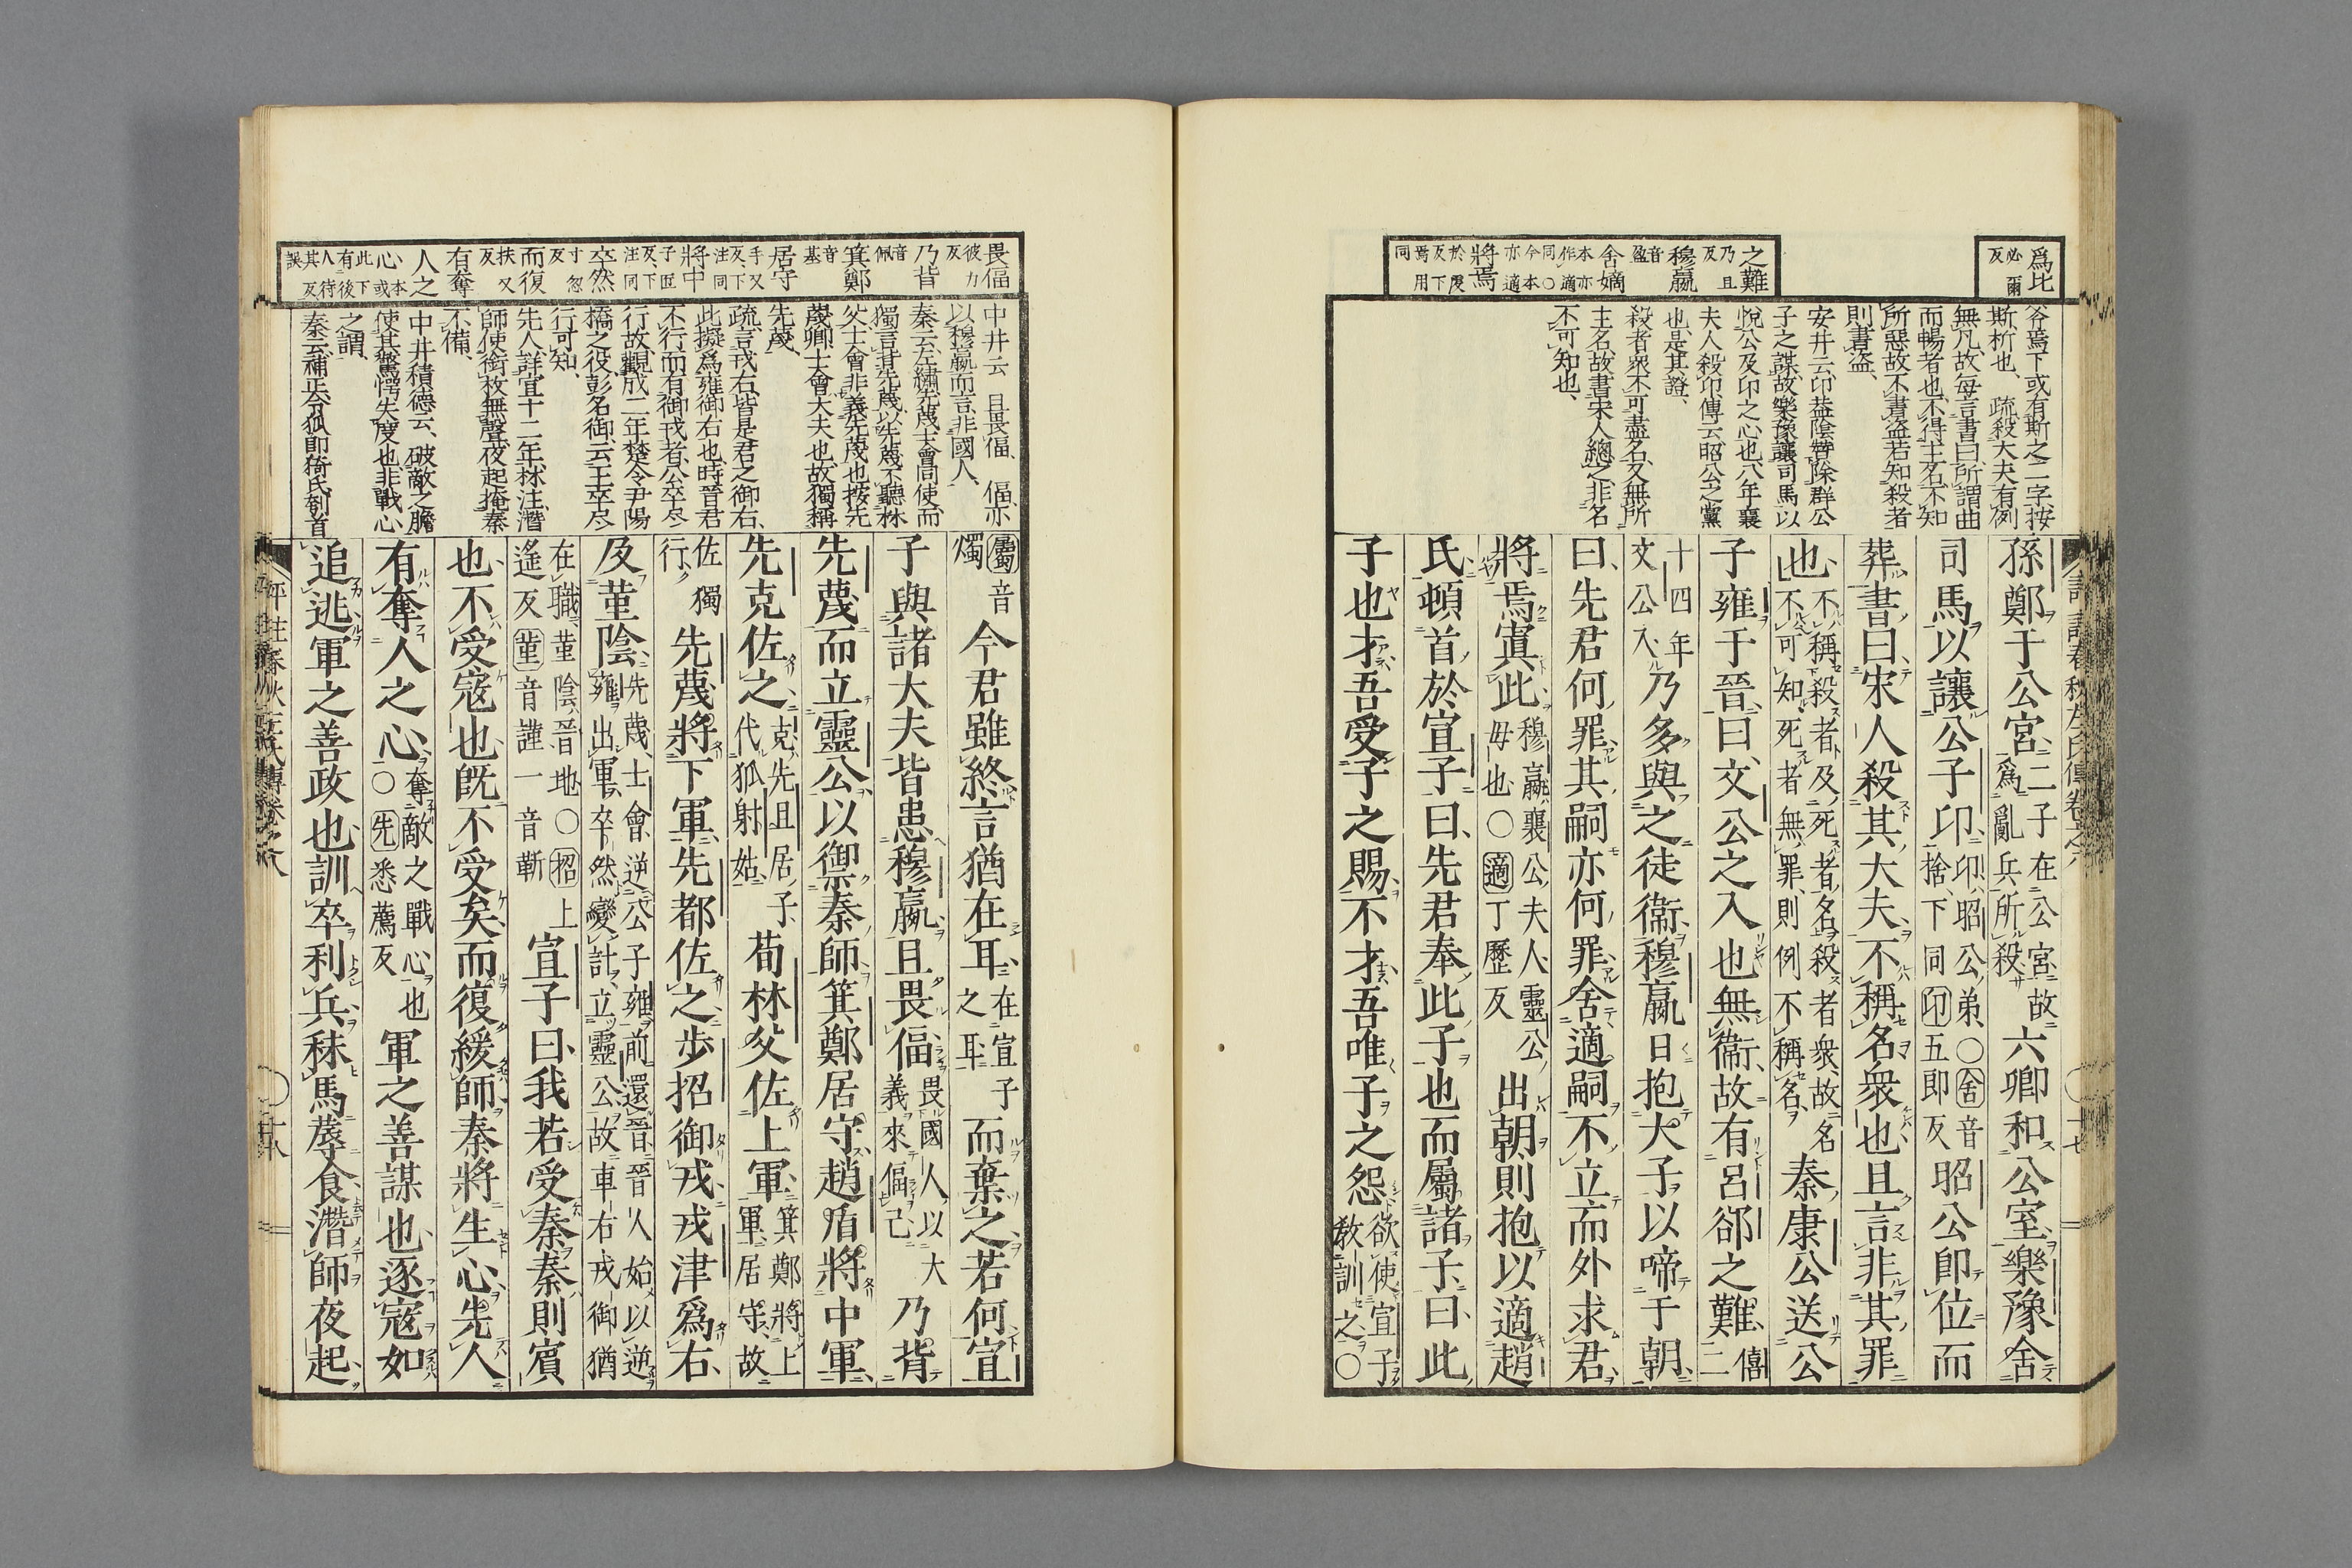 爲比
必爾
反
之難
乃且
反
穆嬴
音
盈
舍嫡
本亦
作適
同〇
今本
亦適
將焉
於虔
反下
焉用
同
斧焉下或有斯之二字、按
斯、析也、　疏、殺大夫有例
無凡、故每言書曰、所謂曲
而暢者也、不得主名、不知
所惡、故不書盜、若知殺者
則書盜、
安井云、卬蓋陰替除群公
子之謀、故樂豫讓司馬以
悅公及卬之心也、八年襄
夫人殺卬、傳云、昭公之黨
也、是其證、
殺者衆、不可盡名、又無所
主名、故書宋人總之、非名
不可知也、
孫鄭于公宮、二子在公宮、故爲亂兵所殺六卿和公室、樂豫舍
司馬以讓公子卬、卬、昭公弟、〇舍音捨、下同卬五郎反昭公卽位而
葬、書曰、宋人殺其大夫、不稱名、衆也、且言非其罪
也、不稱殺者及死者名、殺者衆、故名不可知、死者無罪、則例不稱名、秦康公送公
子雍于晉、曰、文公之入也無衞、故有呂郤之難、僖二
十四年文公入、乃多與之徒衞、穆嬴日抱大子以啼于朝、
曰、先君何罪、其嗣亦何罪、舍適嗣不立、而外求君、
將焉寘此、穆嬴、襄公夫人、靈公母也、〇適丁歷反出朝則抱以適趙
氏、頓首於宣子曰、先君奉此子也、而屬諸子、曰、此
子也才、吾受子之賜、不才、吾唯子之怨、欲使宣子敎訓之、〇
畏偪
彼力
反
乃背
音
佩
箕鄭
音
基
居守
手又
反、下
注同
將中
子匠
反、下
注同
卒然
寸忽
反
而復
扶又
反
有奪
人之
心、本
心或
此下
有後
人待
其反
誤
中井云、且畏偪、偪、亦
以穆嬴而言、非國人、
秦云、左繡、先蔑士會同使、而
獨言背先蔑、以先蔑不聽林
父、士會非義先蔑也、按先
蔑卿、士會大夫也、故獨稱
先蔑、
疏言、戎右、皆是君之御右、
此擬爲雍御右也、時晉君
不行、而有御戎者、公卒尽
行故、觀成二年楚令尹陽
橋之役、彭名御、云王卒尽
行可知、
先人詳宣十二年林注、潛
師使銜枚無聲、夜起掩秦
不備、
中井積德云、破敵之膽、
使其驚愕失度也、非戰心
之謂、
秦云、補正、令狐即猗氏、刳首
屬音燭今君雖終、言猶在耳、在宣子之耳而棄之若何、宣
子與諸大夫皆患穆嬴、且畏偪、畏國人以大義來偪己乃背
先蔑而立靈公、以禦秦師、箕鄭居守、趙盾將中軍、
先克佐之、克、先且居子、代狐射姑、荀林父佐上軍、箕鄭將上軍、居守、故
佐獨行、先蔑將下軍、先都佐之、步招御戎、戎津爲右、
及菫陰、先蔑士會逆公子雍前還晉、晉人始以逆雍出軍、卒然變計、立靈公、故車右戎御猶
在職、菫陰、晉地〇招上遙反菫音謹一音靳宣子曰、我若受秦、秦則賓
也、不受、寇也、旣不受矣、而復緩師、秦將生心、先人
有奪人之心、奪敵之戰心也〇先悉薦反軍之善謀也、逐寇如
追逃、軍之善政也、訓卒利兵、秣馬蓐食、潛師夜起、